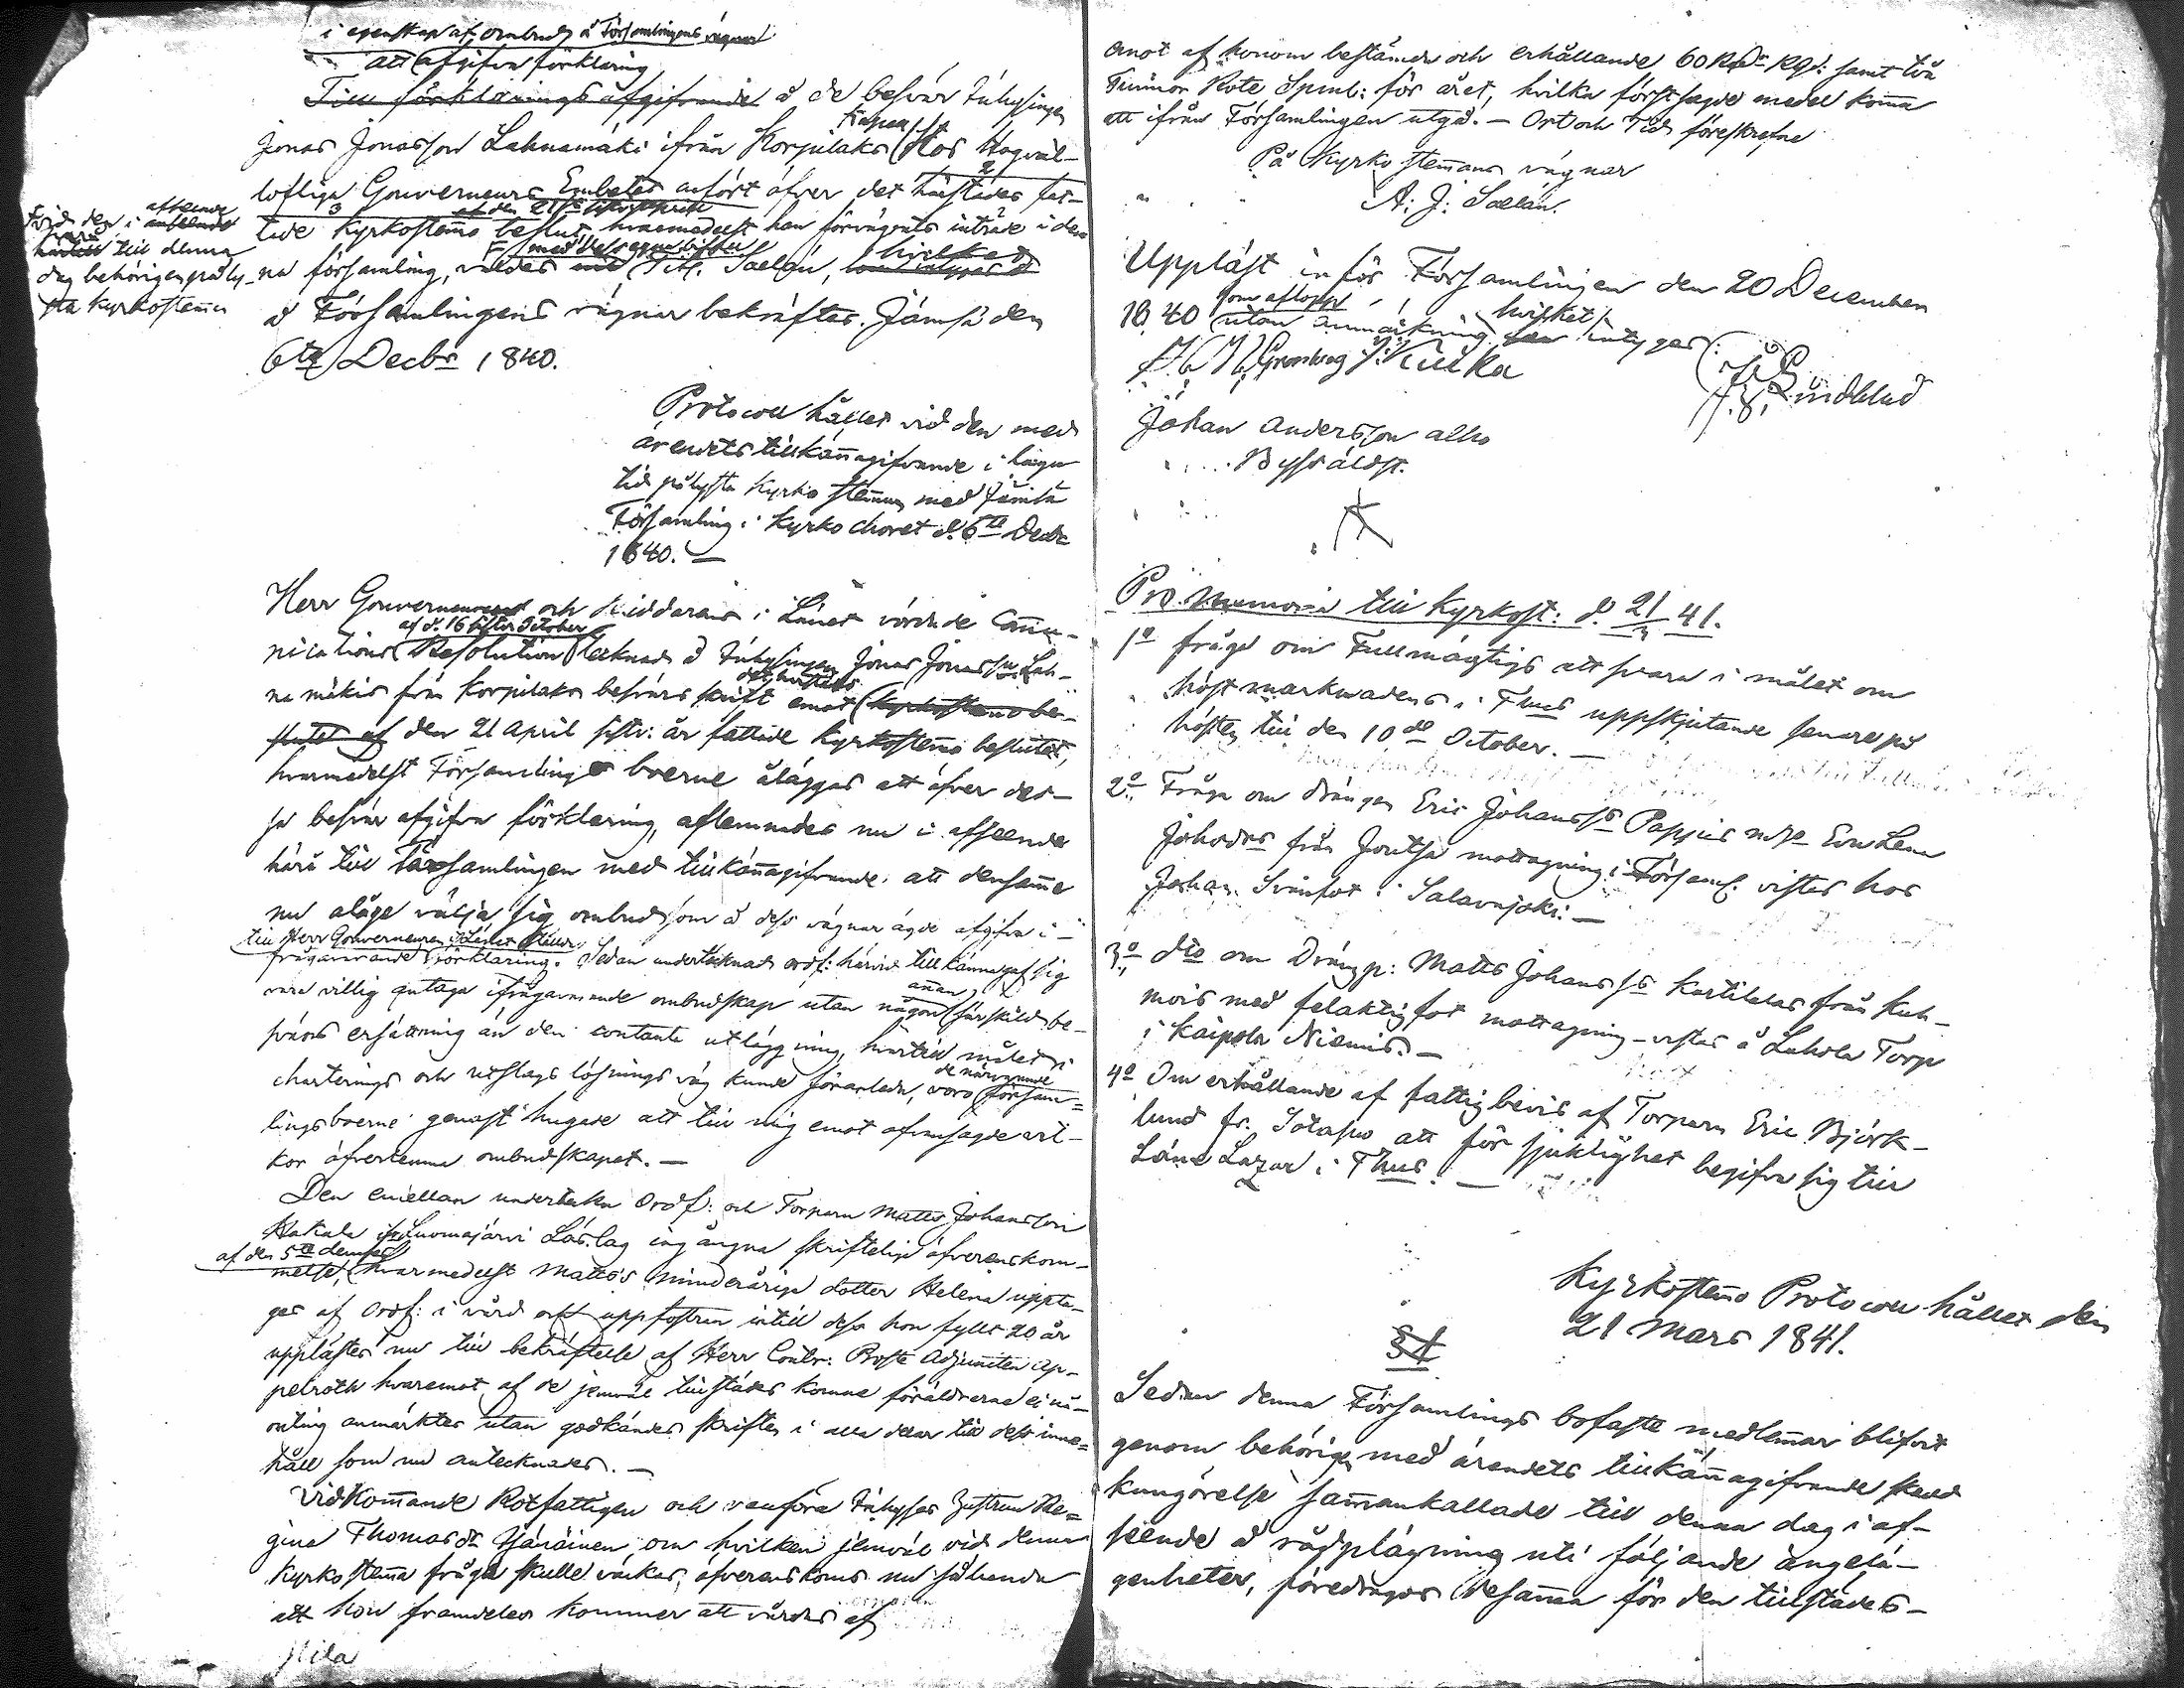 i egenskap af ombud å Församlingens vägnar
att afgifva förklaring
Till förklarings afgifvande å de besvär Inhysingen
Jonas Jonasson Lahnamäki ifrån Korpilaks Kapell hos Högväl-
lofliga Gouverneurs Embetet anfört öfver det härstädes fat-
af den 21
tade Kyrkostemo beslut hvarmedelst han förvägrats inträde i den-
med dess egna
hvilket
na församling, valdes Tit. Saelan,
å Församlingens vägnar bekräftas. Jämsä den
6te Decbr 1840.
vid den i afseende
härå till denna
dag behörigen pålys-
ta Kyrkostemn
Protocoll hållet vid den med
ärendets tillkännagifvande i laga
tid pålysta Kyrko stemman med Jämsä
Församling i Kyrko choret d. 6te Decbr
1840. —
Herr Gouverneurens och Riddarens i Länet vördade Comu-
af d. 16 sistl. October
nications Resolution tecknad å Inhysingen Jonas Jonasson Lah-
det härstädes
namäkis från Korpilaks besvärs skrift emot Kyrkostemo be-
slutet af den 21 April sistl: år fattade Kyrkostemo beslutet,
hvarmedelst Församlings boerne åläggas att öfver des-
sa besvär afgifva förklaring, aflemnades nu i afseende
härå till Församlingen med tillkännagifvande att densamme
nu ålåge välja sig ombud som å dess vägnar ägde afgifva i-
till Herr Gouverneuren i Länet ställd
frågavarande förklaring. Sedan undertecknad ordf: härvid tillkännagaf sig
vara villig antaga ifrågavarande ombudskap utan någon annan särskild be-
svärs ersättning än den contanta utläggning, hvartill målet i
charterings och utslags lösnings väg kunde föranleda, voro de närvarande försam-
lingsboerne genast hugade att till mig emot ofvansagde vil-
kor öfverlemna ombudskapet. —
Den emellan undertecknad Ordf: och Torparen Matts Johansson
Hakala i Luomajärvi Läslag ingångna skriftliga öfverenskom-
af den 5te dennes
melse, hvarmedelst Matts's minderåriga dotter Helena uppta-
ges af Ordf: i vård och uppfostran intill dess hon fyllt 20 år
upplästes nu till bekräftelse af Herr Contr: Proste Adjuncten Ap-
pelroth hvaremot af de jemväl tillstädes komne föräldrarna ej nå-
onting anmärktes utan godkändes skriften i alla delar till dess inne-
håll som nu antecknades. —
Vidkommande Rotfattigen och vanföra Inhyses hustrun Re-
gina Thomasdr Hjäräinen, om hvilken jemväl vid denna
Kyrkostemma fråga skulle väckas, öfverenskoms nu såhända
att hon framdeles kommer att vårdas af
Hila
emot af honom bestämde och erhållande 60 Rubl. Rgs: samt två
Tunnor Rote Spml: för året, hvilka förstsagde medel komma
att ifrån Församlingen utgå. — Ort och Tid föreskrefne
På Kyrko stemmans vägnar
A: J: Saelan.
Uppläst inför Församlingen den 20 December
som aflopp
hvilket
1840 utan anmärkning intygas:
Gronberg J: Killka
Lindblad
Johan andersson alho
Byssäldst.
Pro Memoria till Kyrkost: d. 21/3 41.
1o fråga om Fullmägtigs att svara i målet om
höst marknadens i Thus uppskjutande senare på
hösten till den 10de October. —
2o Fråga om drängen Eric Johanss Pappis m/h Eva Lena
Johsdrs från Joutsa mottagning i Församl: vistas hos
Johan Svinhot i Salavajoki. —
3o do om Dräng p: Matts Johanss Kartilas från Kuh-
mois med felaktig fot mottagning – vistas å Lahola Torp
i Kaipola Niemis. —
4o Om erhållande af fattigbevis af Torparen Eric Björk-
lund fr. att för sjuklighet begifva sig till
Läne Lazar. i Thus. —
Kyrkostemo Protocoll hållet den
21 Mars 1841.
§ 1
Sedan denna Församlings bofaste medlemmar blifvit
genom behörigen med ärendets tillkännagifvande skedd
kungörelse sammankallade till denna dag i af-
seende å rådplägning uti följande angelä-
genheter, föredrogos desamma för den tillstädes-